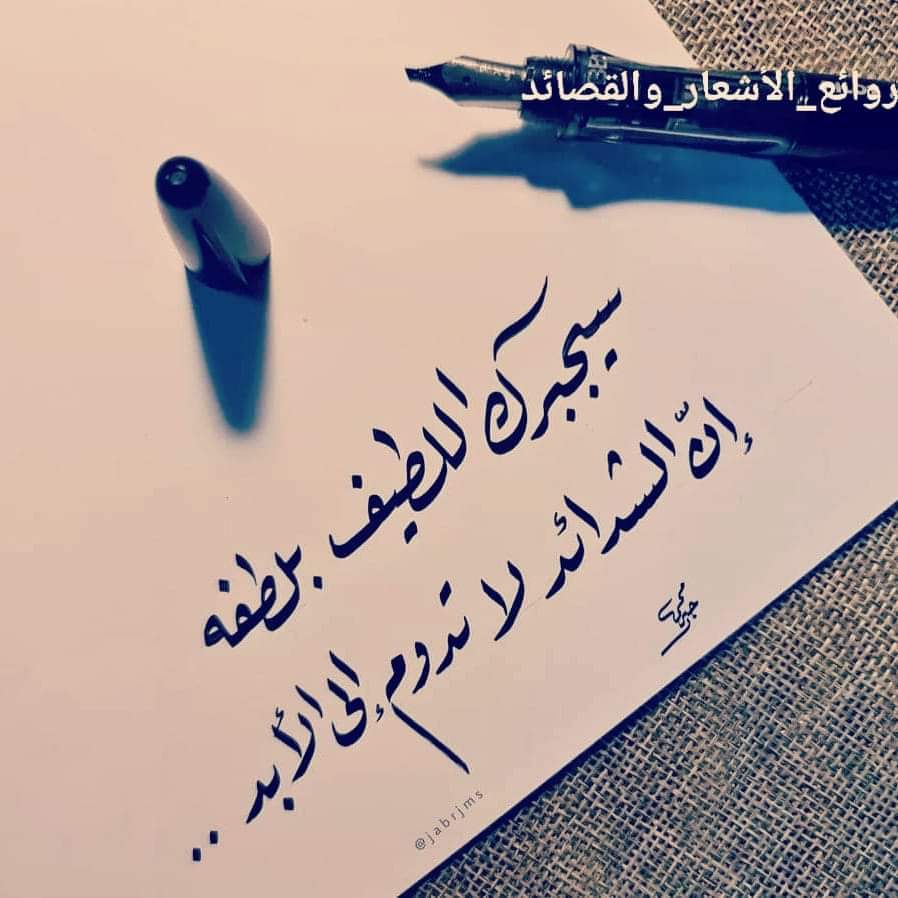 روائع_الأشعار_والقصائد
سيجبرك اللطيف بلطفه
إنّ الشدائد لا تدوم إلى الأبد ..
@jabrjms